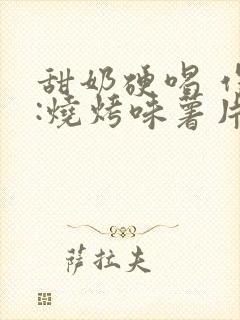 甜奶硬唱
:燒烤味薯片
萨拉夫